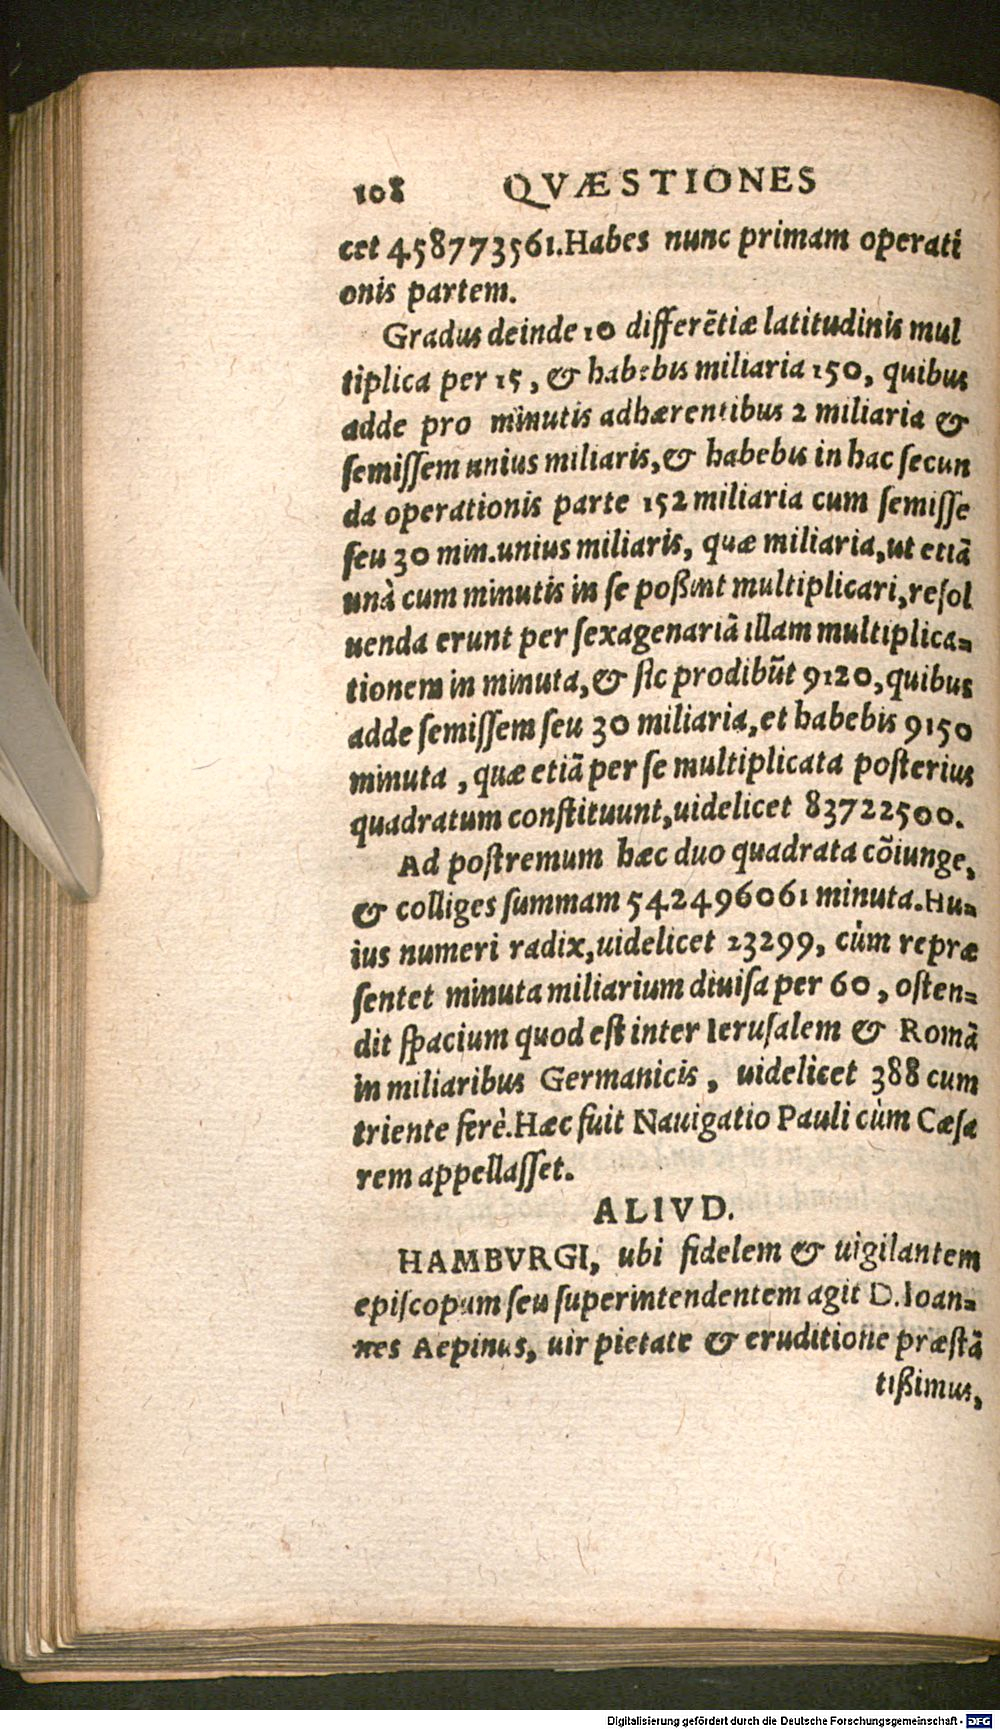 108 QVÆSTIONES
cet 458773561. Habes nunc primam operati
onis partem.
Gradus deinde 10 differẽtiæ latitudinis mul
tiplica per 15, & habebis miliaria 150, quibus
adde pro minutis adhærentibus 2 miliaria &
ſemiſſem unius miliaris, & habebis in hac ſecun
da operationis parte 152 miliaria cum ſemiſſe
ſeu 30 min. unius miliaris, quæ miliaria, ut etiã
unà cum minutis in ſe poßint multiplicari, reſol
uenda erunt per ſexagenariã illam multiplica=
tionem in minuta, & ſic prodibũt 9120, quibus
adde ſemiſſem ſeu 30 miliaria, et habebis 9150
minuta, quæ etiã per ſe multiplicata poſterius
quadratum conſtituunt, uidelicet 83722500.
Ad poſtremum hæc duo quadrata cõiunge,
& colliges ſummam 542496061 minuta. Hu=
ius numeri radix, uidelicet 23299, cùm repræ
ſentet minuta miliarium diuiſa per 60, oſten=
dit ſpacium quod eſt inter Ieruſalem & Romã
in miliaribus Germanicis, uidelicet 388 cum
triente ferè. Hæc fuit Nauigatio Pauli cùm Cæſa
rem appellaſſet.
ALIVD.
HAMBVRGI, ubi fidelem & uigilantem
epiſcopum ſeu ſuperintendentem agit D. Ioan=
nes Aepinus, uir pietate & eruditione præſtã
tißimus,
Digitalisierung gefördert durch die Deutsche Forschungsgemeinschaft - DFG